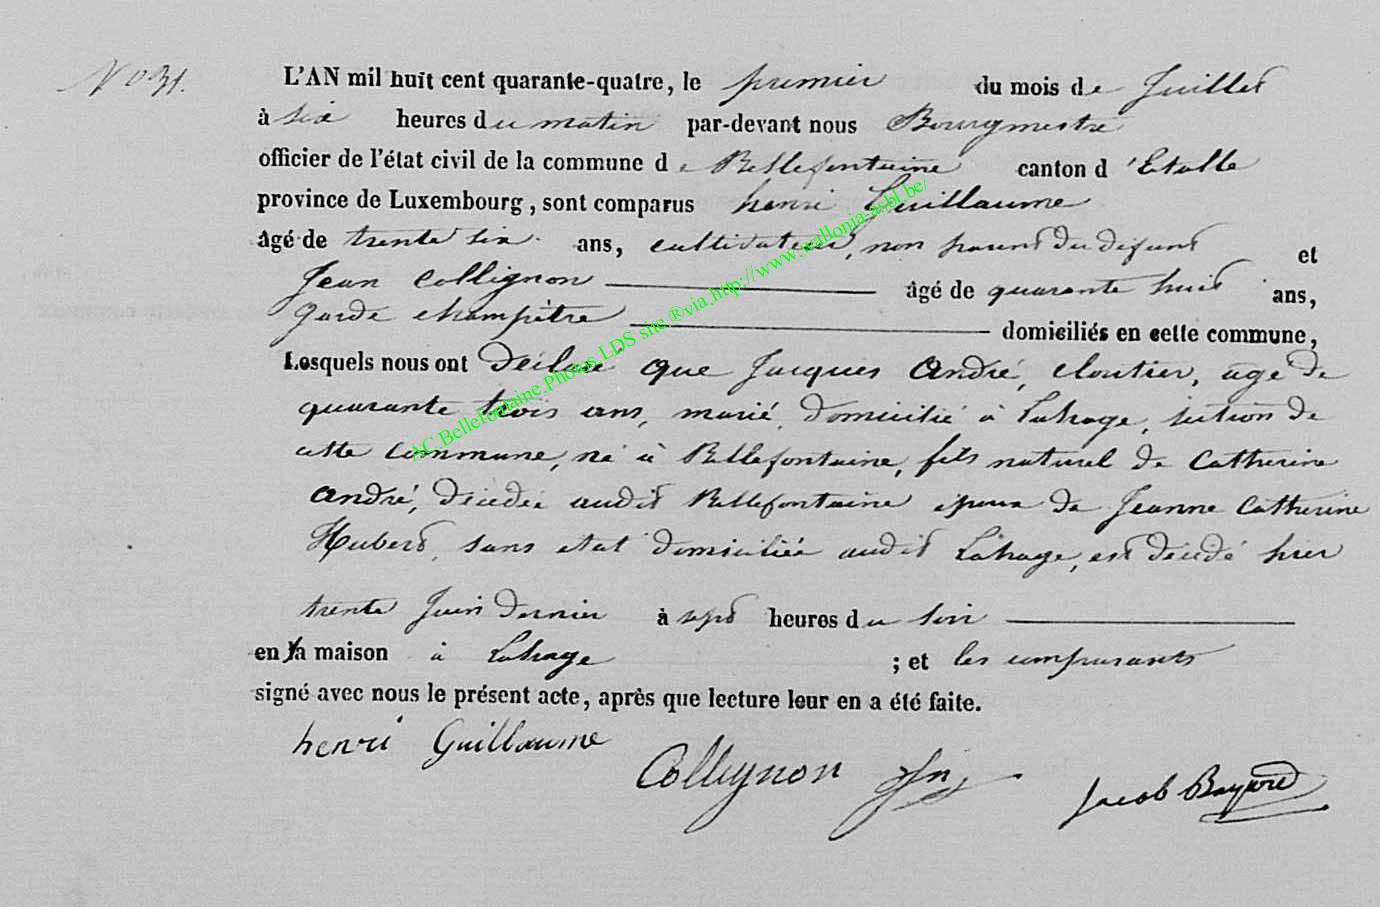 N° 31.
L'AN mil huit cent quarante-quatre, le premier du mois de Juillet
à six heures du matin par-devant nous Bourgmestre
officier de l'état civil de la commune de Bellefontaine canton d'Etalle
province de Luxembourg, sont comparus henri Guillaume
âgé de trente six ans, cultivateur, non parent du défunt et
Jean Collignon âgé de quarante huit ans,
garde champêtre domiciliés en cette commune,
Lesquels nous ont déclaré que Jacques André, cloutier, agé de
quarante trois ans, marié, domicilié à Lahage, section de
cette commune, né à Bellefontaine, fils naturel de Catherine
André, décédée audit Bellefontaine époux de Jeanne Catherine
Hubert, sans état domiciliée audit Lahage, est décédé hier
trente Juin dernier à sept heures du soir
en la maison à Lahage ; et les comparants
signé avec nous le présent acte, après que lecture leur en a été faite.
henri Guillaume
Collignon
Jacob Bayard
AC.Bellefontaine.Photos LDS site ®via.http://www.wallonia-asbl.be/